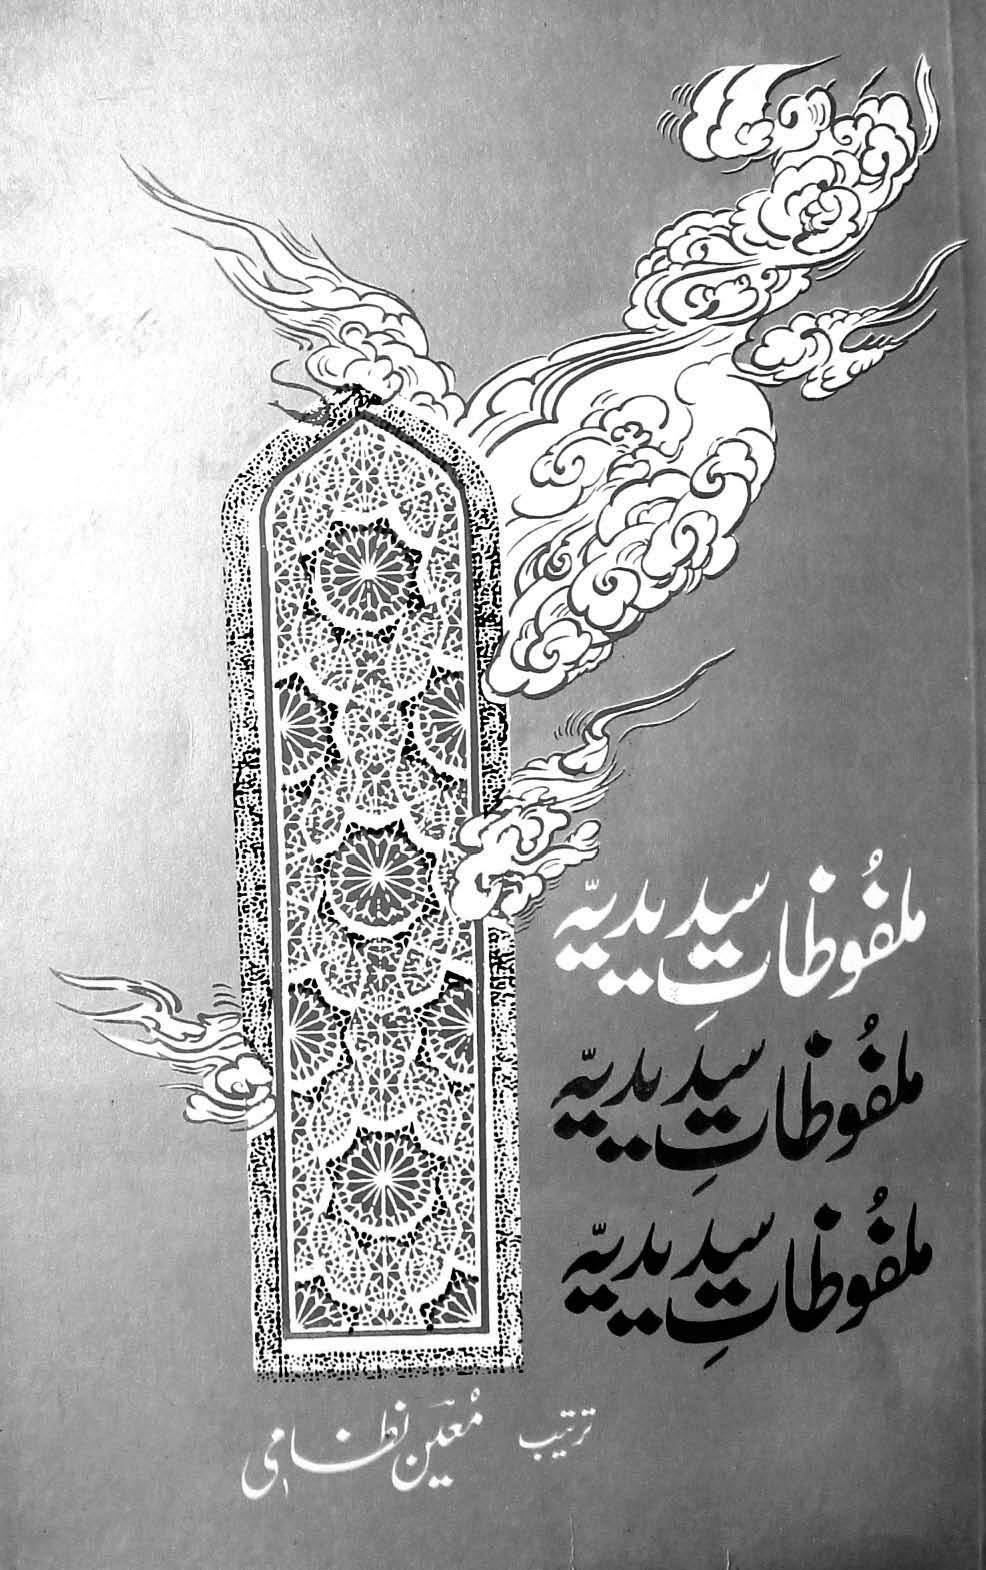 ملفُوظاتِ سدیدیّہ
ملفُوظاتِ سدیدیّہ
ملفُوظاتِ سدیدیّہ
ترتیب مُعین نظامی